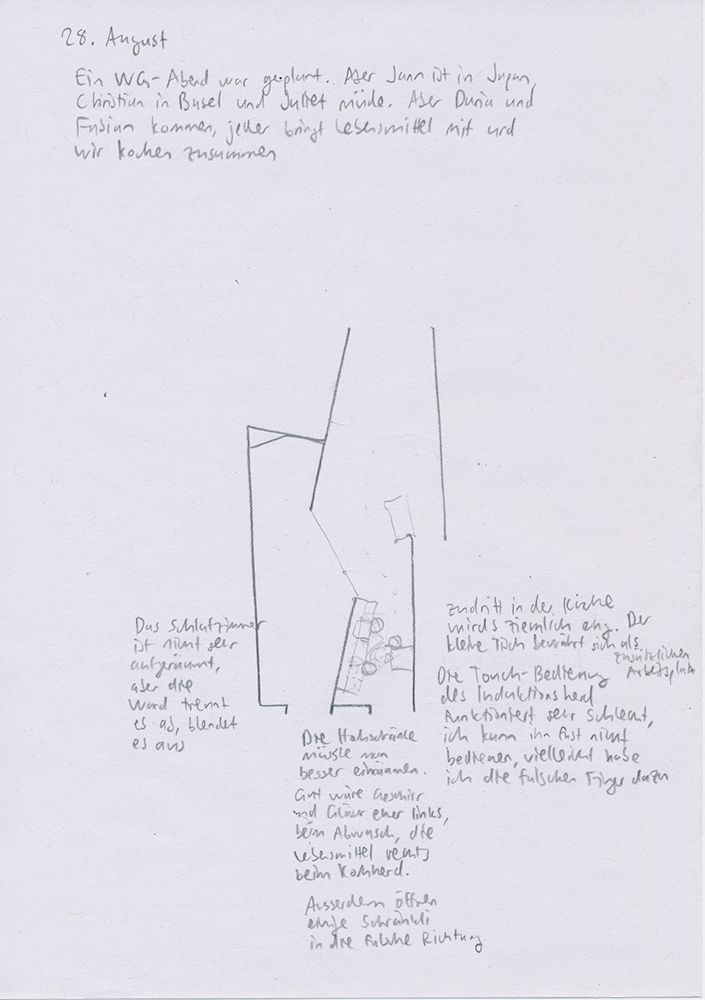 28. August
Ein WG-Abend war geplant. Aber Jann ist in Japan,
Christian in Basel und Juliet müde. Aber Daria und
Fabian kommen, jeder bringt Lebensmittel mit und
wir kochen zusammen
Das Schlafzimmer
ist nicht sehr
aufgeräumt,
aber die
Wand trennt
es ab, blendet
es aus
Die Hochschränke
müsste man
besser einräumen.
Gut wäre Geschirr
und Gläser eher links,
beim Abwasch, die
Lebensmittel rechts
beim Kochherd.
Ausserdem öffnen
einige Schränkli
in die falsche Richtung
zudritt in der Küche
wirds ziemlich eng. Der
kleine Tisch bewährt sich als
zusätzlichen
Arbeitsplatz
Die Touch-Bedienung
des Induktionsherd
funktioniert sehr schlecht,
ich kann ihn fast nicht
bedienen, vielleicht habe
ich die falschen Finger dazu